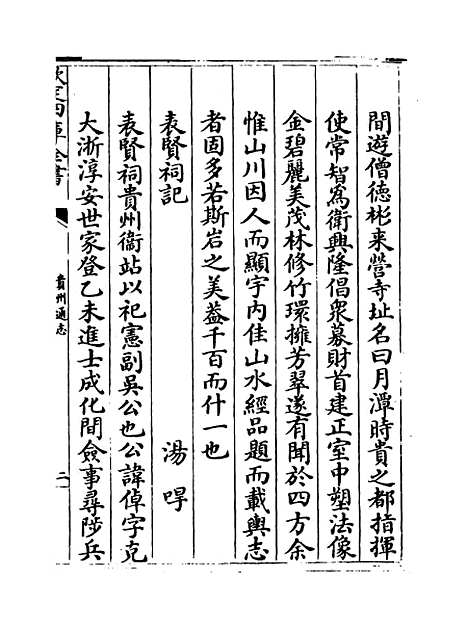 間遊僧德彬来營寺址名曰月潭時貴之都指揮
使常智為衛興隆倡衆募財首建正室中塑法像
金碧麗美茂林修竹環擁芳翠遂有聞於四方余
惟山川因人而顯宇内佳山水經品題而載輿志
者固多若斯岩之美葢千百而什一也
表賢祠記　湯㖕
表賢祠貴州衞站以祀憲副吳公也公諱倬字克
大浙淳安世家登乙未進士成化間僉事尋陟兵
欽定四庫全書
貴州通志